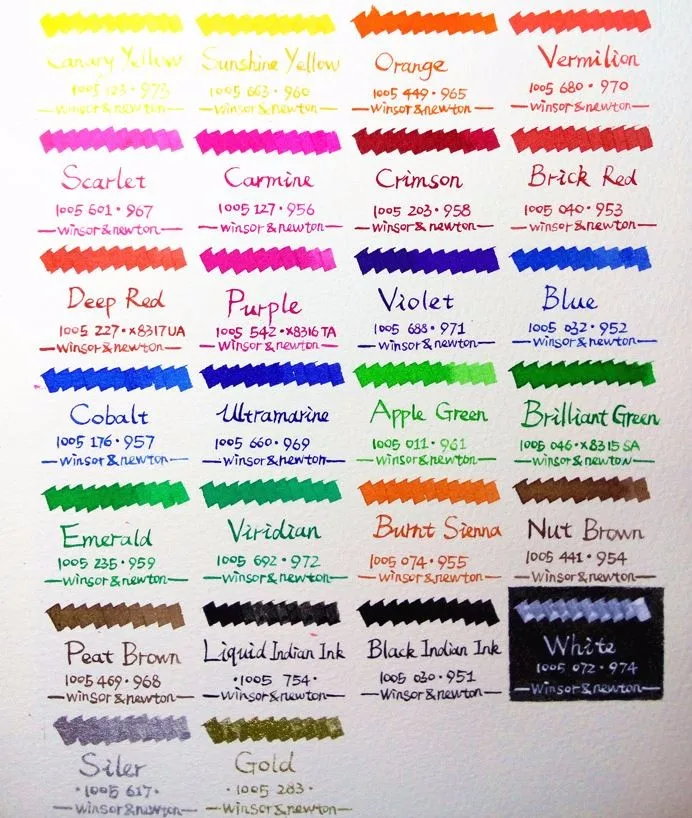 Canary Yellow
1005 123 · 973
—Winsor&newton—
Sunshine Yellow
1005 663 · 960
—Winsor&newton—
Orange
1005 449 · 965
—Winsor&newton—
Vermilion
1005 680 · 970
—Winsor&newton—
Scarlet
1005 601 · 967
—Winsor&newton—
Carmine
1005 127 · 956
—Winsor&newton—
Crimson
1005 203 · 958
—Winsor&newton—
Brick Red
1005 040 · 953
—Winsor&newton—
Deep Red
1005 227 · x8317UA
—Winsor&newton—
Purple
1005 542 · x8316TA
—Winsor&newton—
Violet
1005 688 · 971
—Winsor&newton—
Blue
1005 032 · 952
—Winsor&newton—
Cobalt
1005 176 · 957
—Winsor&newton—
Ultramarine
1005 660 · 969
—Winsor&newton—
Apple Green
1005 011 · 961
—Winsor&newton—
Brilliant Green
1005 046 · x8315SA
—Winsor&newton—
Emerald
1005 235 · 959
—Winsor&newton—
Viridian
1005 692 · 972
—Winsor&newton—
Burnt Sienna
1005 074 · 955
—Winsor&newton—
Nut Brown
1005 441 · 954
—Winsor&newton—
Peat Brown
1005 469 · 968
—Winsor&newton—
Liquid Indian Ink
· 1005 754 ·
—Winsor&newton—
Black Indian Ink
1005 030 · 951
—Winsor&newton—
White
1005 072 · 974
—Winsor&newton—
Siler
· 1005 617 ·
—Winsor&newton—
Gold
· 1005 283 ·
—Winsor&newton—